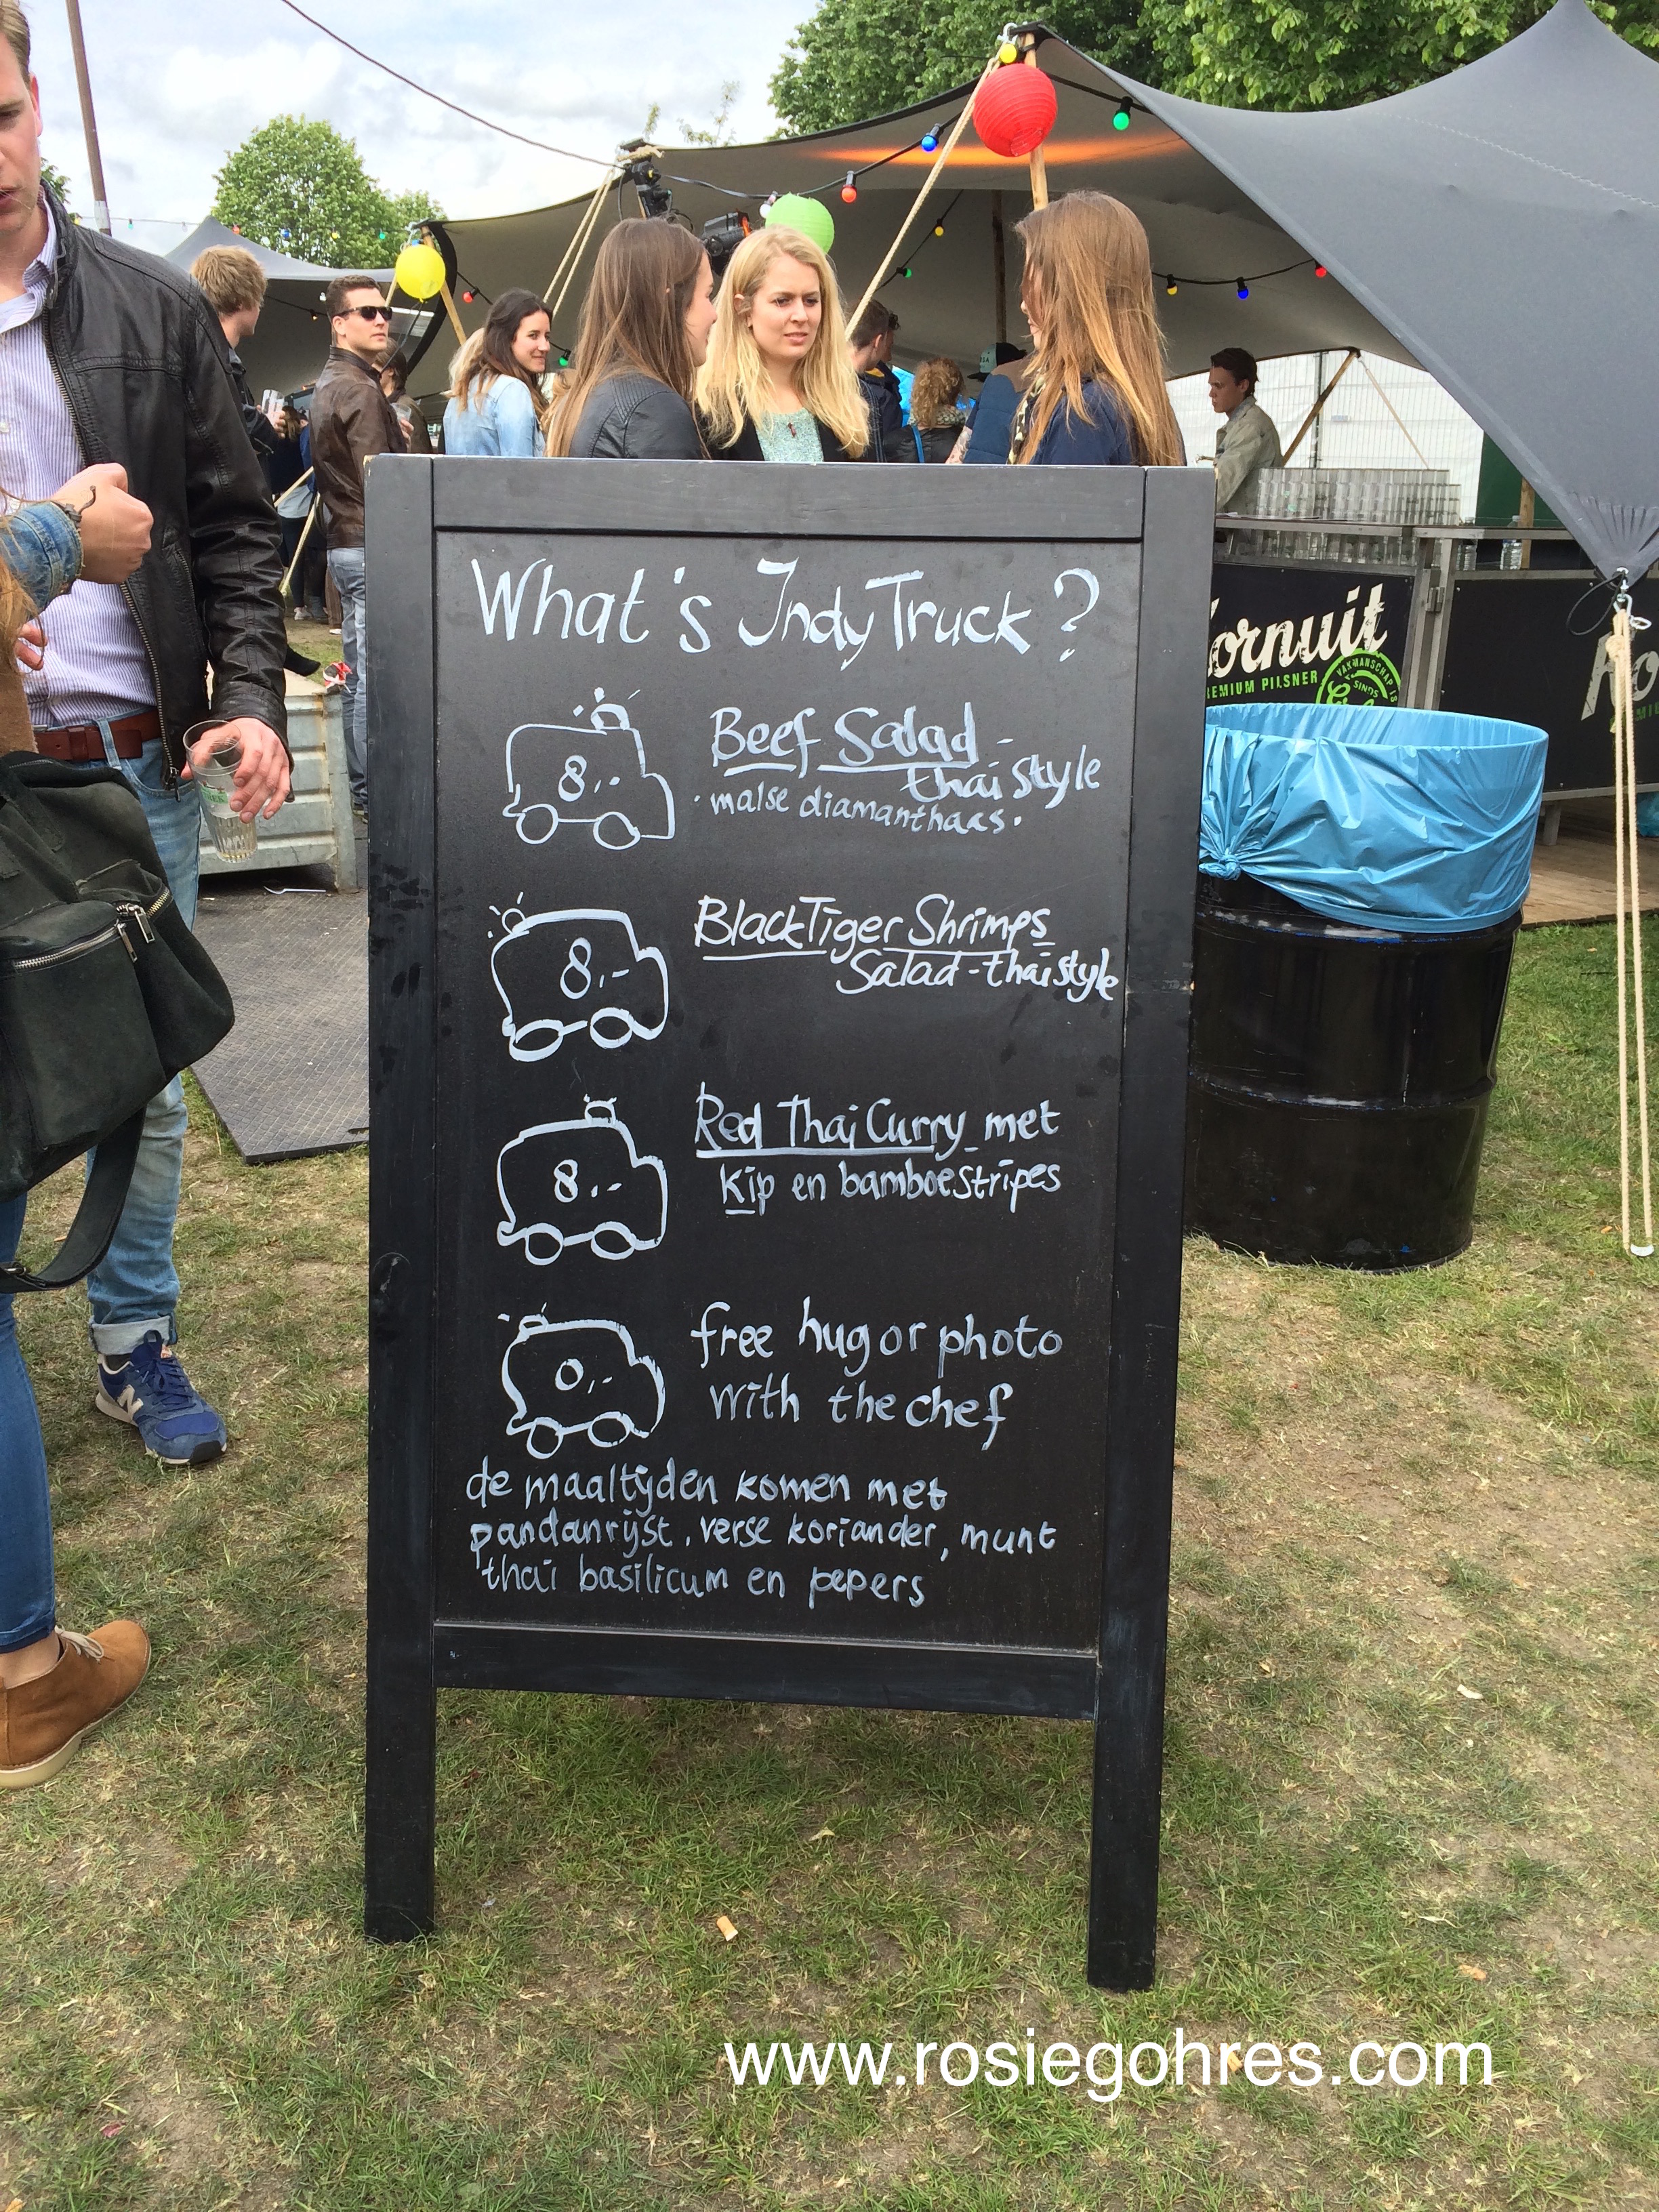 What's Indy Truck?
8,- Beef Salad -
thai style
· malse diamanthaas.
8,- Black Tiger Shrimps
Salad - thai style
Red Thai Curry met
8,- Kip en bamboestripes
free hug or photo
0,- with the chef
de maaltijden komen met
pandanrijst, verse koriander, munt
thai basilicum en pepers
ornuit
REMIUM PILSNER
VAKMANSCHAP IS
SINDS
www.rosiegohres.com